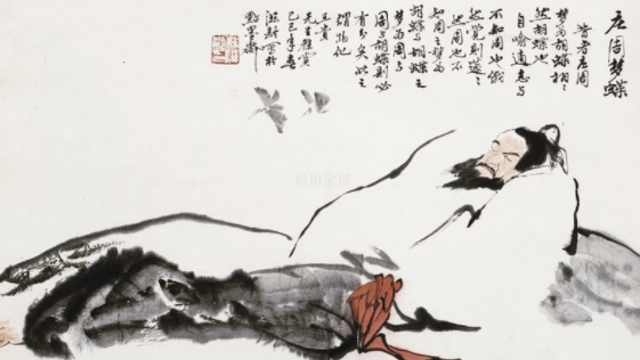 庄周梦蝶
昔者庄周
梦为胡蝶栩々
然胡蝶也
自喻適志与
不知周也俄
然觉则蘧々
然周也不
知周之梦为
胡蝶与胡蝶之
梦为周与
周与胡蝶则必
有分矣此之
谓物化
王貴
先生雅賞
己巳年春
易拍全球